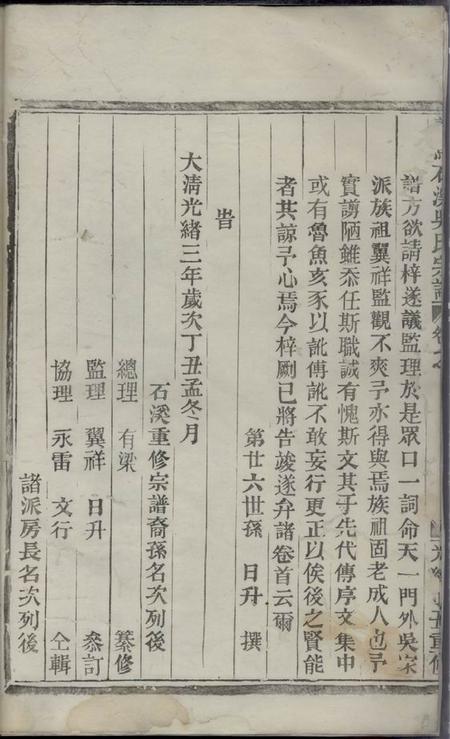 石溪吳氏宗譜 卷之
光緒丁丑重修
譜方欲請梓遂議監理於是眾口一詞命天一門外吳家
派族祖翼祥監觀不爽予亦得與焉族祖固老成人也予
實謭陋雖忝任斯職誠有愧斯文其于先代傳序文集中
或有魯魚亥豕以訛傳訛不敢妄行更正以俟後之賢能
者其諒予心焉今梓劂已將告竣遂弁諸卷首云爾
第廿六世孫 日升 撰
旹
大清光緒三年歲次丁丑孟冬月
石溪重修宗譜裔孫名次列後
總理 有梁 纂修
監理 翼祥 日升 叅訂
協理 永雷 文行 仝輯
諸派房長名次列後